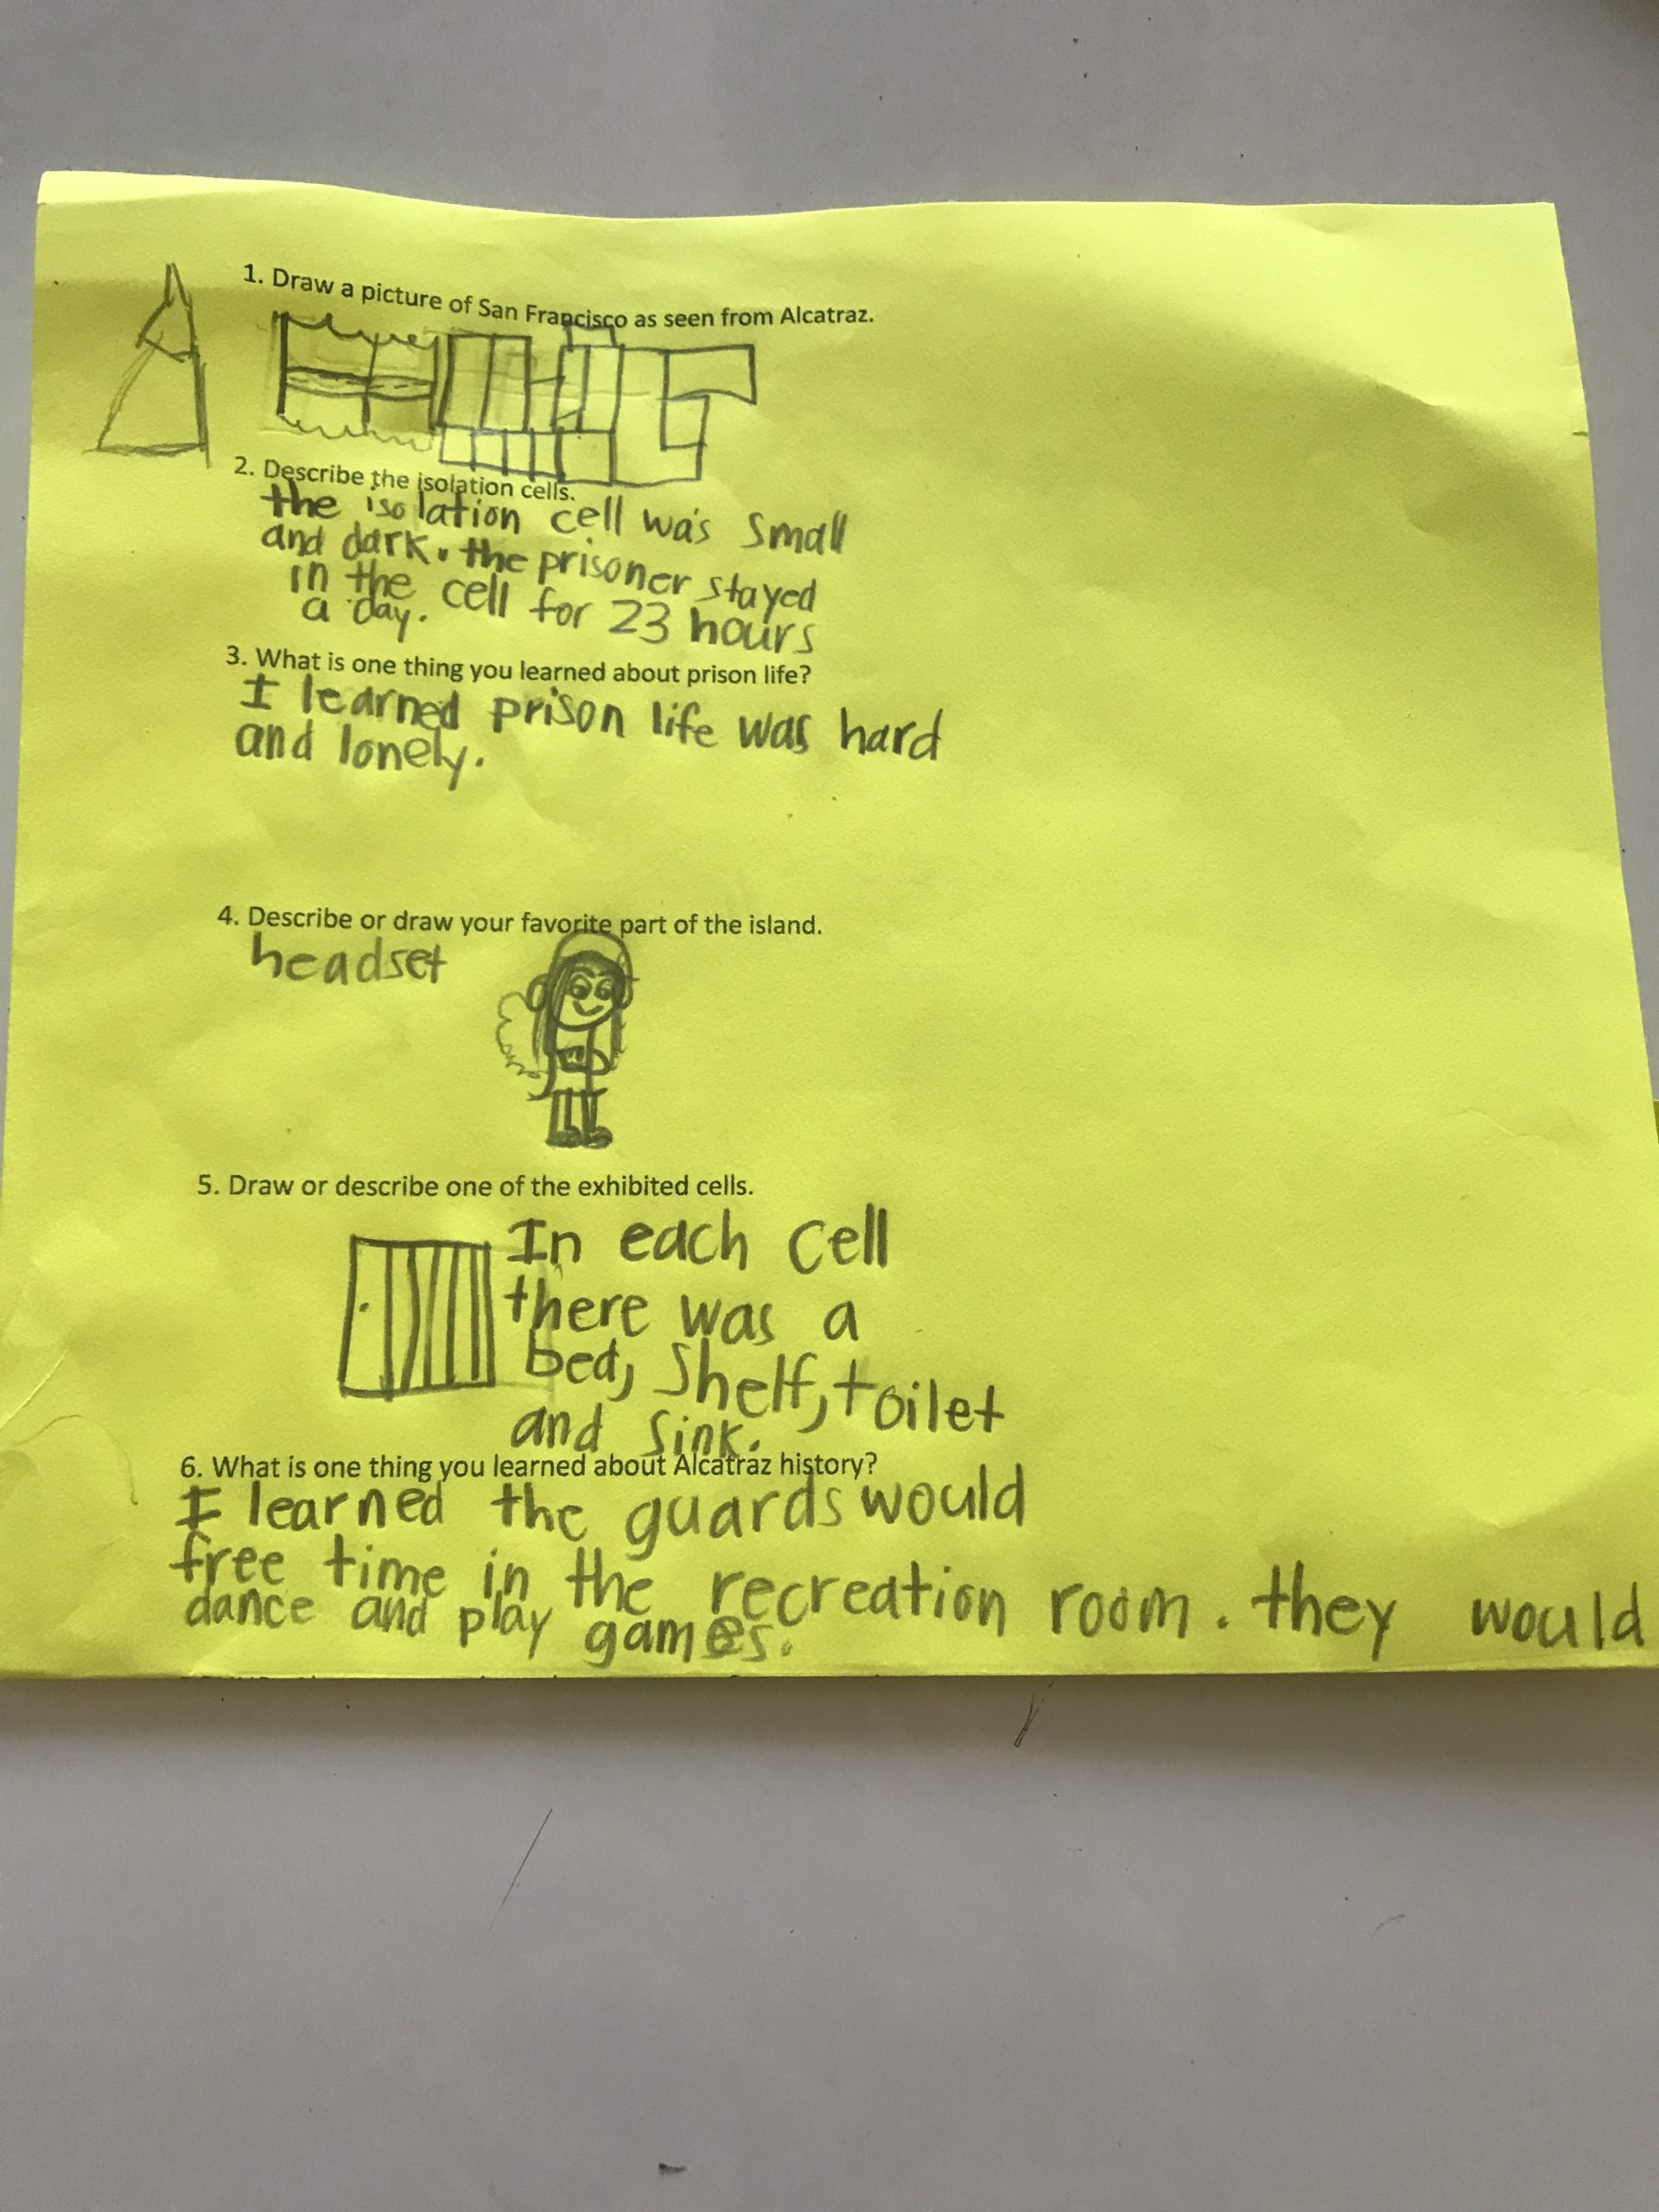 1. Draw a picture of San Francisco as seen from Alcatraz.
2. Describe the isolation cells.
the isolation cell was small
and dark. the prisoner stayed
in the cell for 23 hours
a day.
3. What is one thing you learned about prison life?
I learned prison life was hard
and lonely.
4. Describe or draw your favorite part of the island.
headset
5. Draw or describe one of the exhibited cells.
In each cell
there was a
bed, Shelf, toilet
and sink.
6. What is one thing you learned about Alcatraz history?
I learned the guards would
free time in the recreation room. they would
dance and play games.